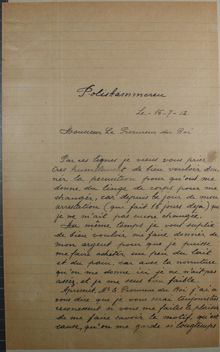 Polistammeren
Le - 15-7-12
Monsieur Le Procureur du Roi
Par ces lignes je viens vous prier
tres humblement de bien vouloir don
ner la permition pour qu'ont me
donne du linge de corps pour me
changer, car depuis le jour de mon
arrestation (que fait 16 jours deja) que
je ne m'ait pas encore changée.
La meme temps je vous suplie
de bien vouloir me faire donner de
mon argent pour que je puisse
me faire acheter un peu du lait
et du pain, car avec la nourriture
qu'on me donne ici je ne n'ait pas
assez, et je me sens bien faible.
Mr le Procureur du Roi j'ai à
vous dire que je vous serai toujours
si vous me faites le plaisir
de me faire savoir le motif, qui est
cause, qu'on me garde si longtemps